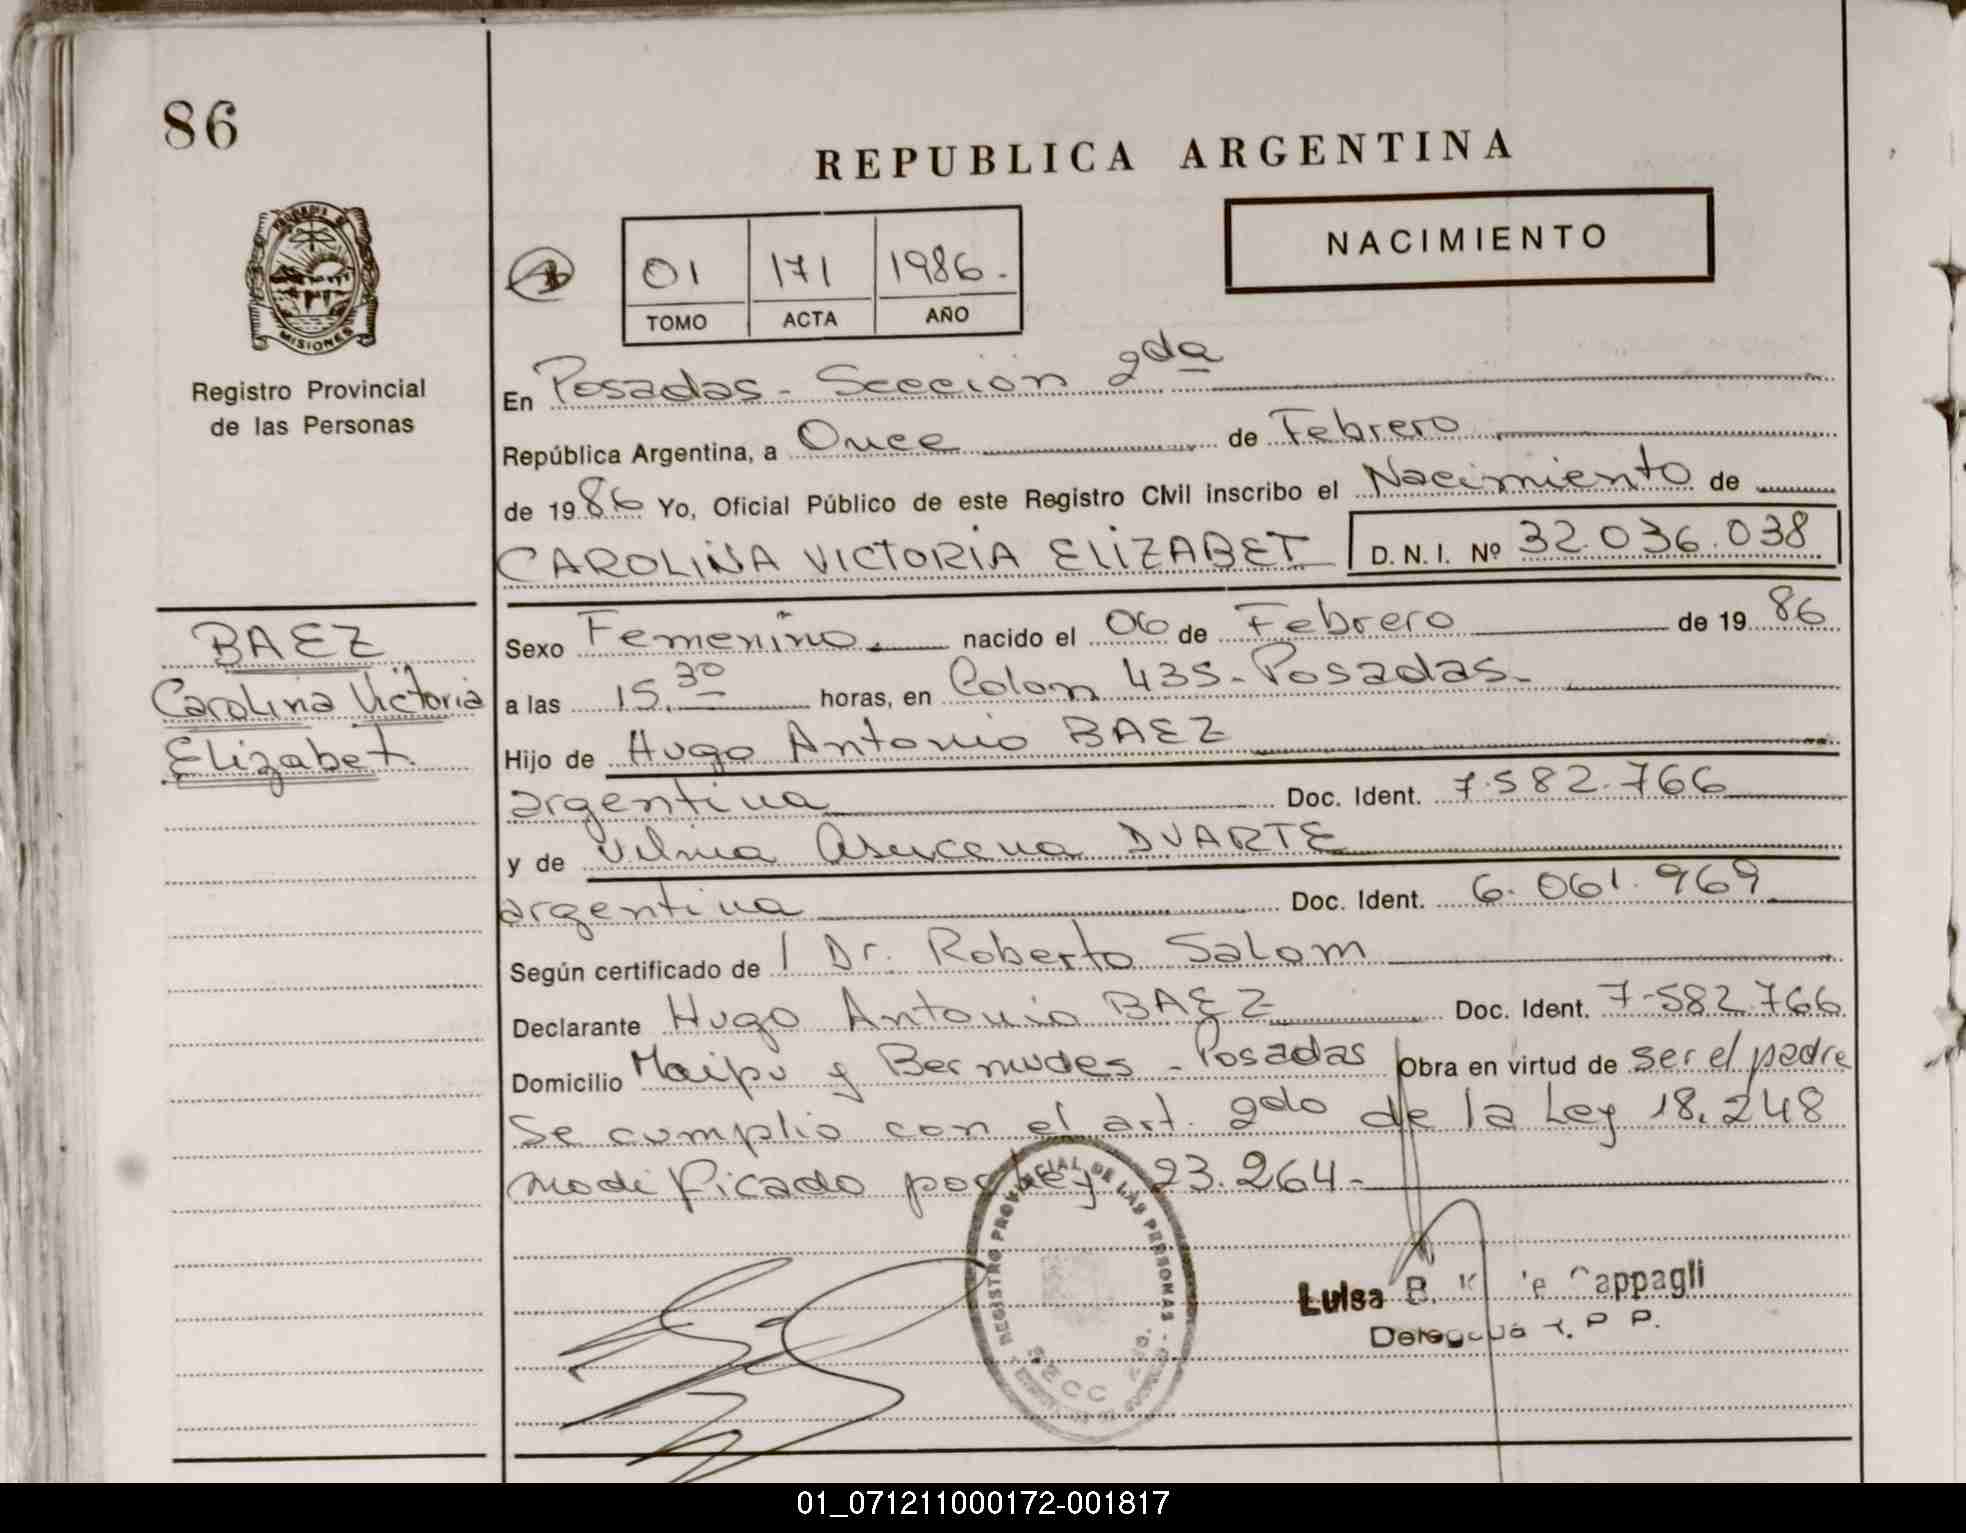 86
REPUBLICA ARGENTINA
NACIMIENTO
01 171 1986.
TOMO ACTA AÑO
MISIONES
Registro Provincial
de las Personas
En Posadas - Sección 2da
República Argentina, a Once de Febrero
de 1986 Yo, Oficial Público de este Registro Civil inscribo el Nacimiento de
CAROLINA VICTORIA ELIZABET D. N. I. Nº 32.036.038
BAEZ
Carolina Victoria
Elizabet.
Sexo Femenino. nacido el 06 de Febrero de 1986
a las 15.30 horas, en Colon 435-Posadas-
Hijo de Hugo Antonio BAEZ
argentina Doc. Ident. 7.582.766
y de Vilma Asucena DUARTE
argentina Doc. Ident. 6.061.969
Según certificado de / Dr. Roberto Salom
Declarante Hugo Antonio BAEZ Doc. Ident. 7-582.766
Domicilio Maipu y Bermudes - Posadas Obra en virtud de ser el padre
Se cumplio con el art. 2do de la Ley 18.248
modificado por Ley 23.264-
REGISTRO PROVINCIAL DE LAS PERSONAS
SECC
Luisa B. Cappagli
Delegada R. P. P.
01_071211000172-001817